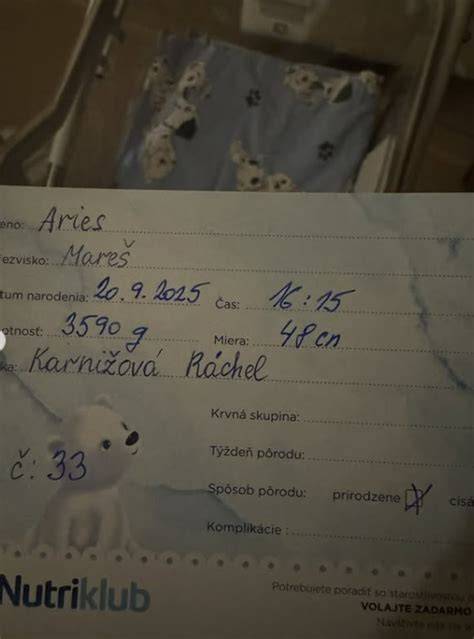 eno: Aries
ezvisko: Mareš
tum narodenia: 20.9.2025 Čas: 16:15
otnosť: 3590 g Miera: 48 cm
ka: Karnižová Ráchel
Krvná skupina:
Týždeň pôrodu:
č: 33
Spôsob pôrodu: prirodzene cisá
Komplikácie :
Nutriklub
Potrebujete poradiť so starostlivosťou
VOLAJTE ZADARMO
Navštívte nás na